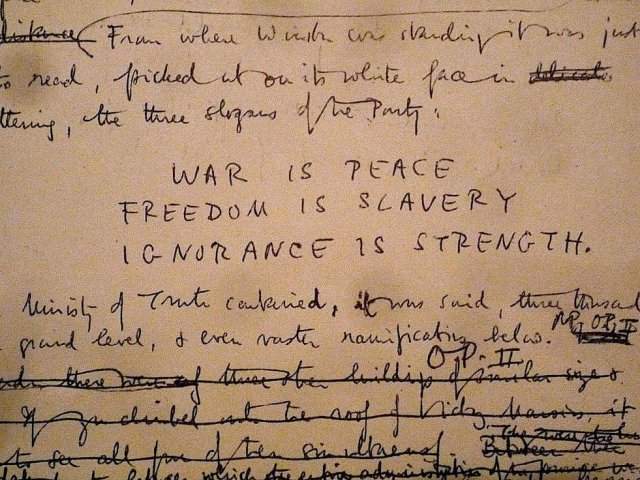 distance From where Winston was standing it was just
to read, picked out on its white face in delicate
ttering, the three slogans of the Party:
WAR IS PEACE
FREEDOM IS SLAVERY
IGNORANCE IS STRENGTH.
Ministry of Truth contained, it was said, three thousand
ground level, & even vaster ramifications below.
OP. II
there were three other buildings of similar size
If you climbed onto the roof of Victory Mansions, it
to see all four of them simultaneously. Between the
which the entire administration of the